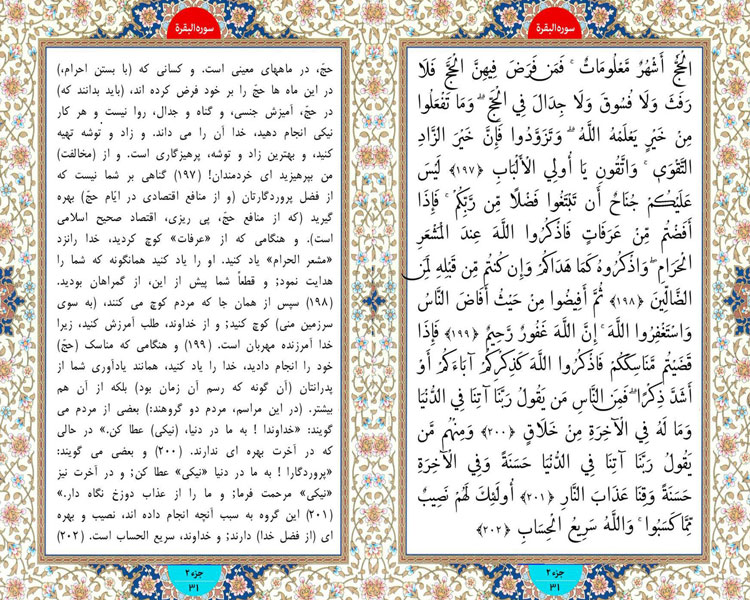 سوره‌البقرة
الْحَجُّ أَشْهُرٌ مَّعْلُومَاتٌ ۚ فَمَن فَرَضَ فِيهِنَّ الْحَجَّ فَلَا
رَفَثَ وَلَا فُسُوقَ وَلَا جِدَالَ فِي الْحَجِّ ۗ وَمَا تَفْعَلُوا
مِنْ خَيْرٍ يَعْلَمْهُ اللَّهُ ۗ وَتَزَوَّدُوا فَإِنَّ خَيْرَ الزَّادِ
التَّقْوَىٰ ۚ وَاتَّقُونِ يَا أُولِي الْأَلْبَابِ ﴿۱۹۷﴾ لَيْسَ
عَلَيْكُمْ جُنَاحٌ أَن تَبْتَغُوا فَضْلًا مِّن رَّبِّكُمْ ۚ فَإِذَا
أَفَضْتُم مِّنْ عَرَفَاتٍ فَاذْكُرُوا اللَّهَ عِندَ الْمَشْعَرِ
الْحَرَامِ ۖ وَاذْكُرُوهُ كَمَا هَدَاكُمْ وَإِن كُنتُم مِّن قَبْلِهِ لَمِنَ
الضَّالِّينَ ﴿۱۹۸﴾ ثُمَّ أَفِيضُوا مِنْ حَيْثُ أَفَاضَ النَّاسُ
وَاسْتَغْفِرُوا اللَّهَ ۚ إِنَّ اللَّهَ غَفُورٌ رَّحِيمٌ ﴿۱۹۹﴾ فَإِذَا
قَضَيْتُم مَّنَاسِكَكُمْ فَاذْكُرُوا اللَّهَ كَذِكْرِكُمْ آبَاءَكُمْ أَوْ
أَشَدَّ ذِكْرًا ۗ فَمِنَ النَّاسِ مَن يَقُولُ رَبَّنَا آتِنَا فِي الدُّنْيَا
وَمَا لَهُ فِي الْآخِرَةِ مِنْ خَلَاقٍ ﴿۲۰۰﴾ وَمِنْهُم مَّن
يَقُولُ رَبَّنَا آتِنَا فِي الدُّنْيَا حَسَنَةً وَفِي الْآخِرَةِ
حَسَنَةً وَقِنَا عَذَابَ النَّارِ ﴿۲۰۱﴾ أُولَٰئِكَ لَهُمْ نَصِيبٌ
مِّمَّا كَسَبُوا ۚ وَاللَّهُ سَرِيعُ الْحِسَابِ ﴿۲۰۲﴾
جزء ۲
۳۱
سوره‌البقرة
حجّ، در ماههای معینی است. و کسانی که (با بستن احرام،)
در این ماه ها حجّ را بر خود فرض کرده اند، (باید بدانند که)
در حجّ، آمیزش جنسی، و گناه و جدال، روا نیست و هر کار
نیکی انجام دهید، خدا آن را می داند. و زاد و توشه تهیه
کنید، و بهترین زاد و توشه، پرهیزگاری است. و از (مخالفت)
من بپرهیزید ای خردمندان! (۱۹۷) گناهی بر شما نیست که
از فضل پروردگارتان (و از منافع اقتصادی در ایّام حجّ) بهره
گیرید (که از منافع حجّ، پی ریزی، اقتصاد صحیح اسلامی
است). و هنگامی که از «عرفات» کوچ کردید، خدا رانزد
«مشعر الحرام» یاد کنید. او را یاد کنید همانگونه که شما را
هدایت نمود; و قطعاً شما پیش از این، از گمراهان بودید.
(۱۹۸) سپس از همان جا که مردم کوچ می کنند، (به سوی
سرزمین منی) کوچ کنید; و از خداوند، طلب آمرزش کنید، زیرا
خدا آمرزنده مهربان است. (۱۹۹) و هنگامی که مناسک (حجّ)
خود را انجام دادید، خدا را یاد کنید، همانند یادآوری شما از
پدرانتان (آن گونه که رسم آن زمان بود) بلکه از آن هم
بیشتر. (در این مراسم، مردم دو گروهند:) بعضی از مردم می
گویند: «خداوندا ! به ما در دنیا، (نیکی) عطا کن.» در حالی
که در آخرت بهره ای ندارند. (۲۰۰) و بعضی می گویند:
«پروردگارا ! به ما در دنیا «نیکی» عطا کن; و در آخرت نیز
«نیکی» مرحمت فرما; و ما را از عذاب دوزخ نگاه دار.»
(۲۰۱) این گروه به سبب آنچه انجام داده اند، نصیب و بهره
ای (از فضل خدا) دارند; و خداوند، سریع الحساب است. (۲۰۲)
جزء ۲
۳۱